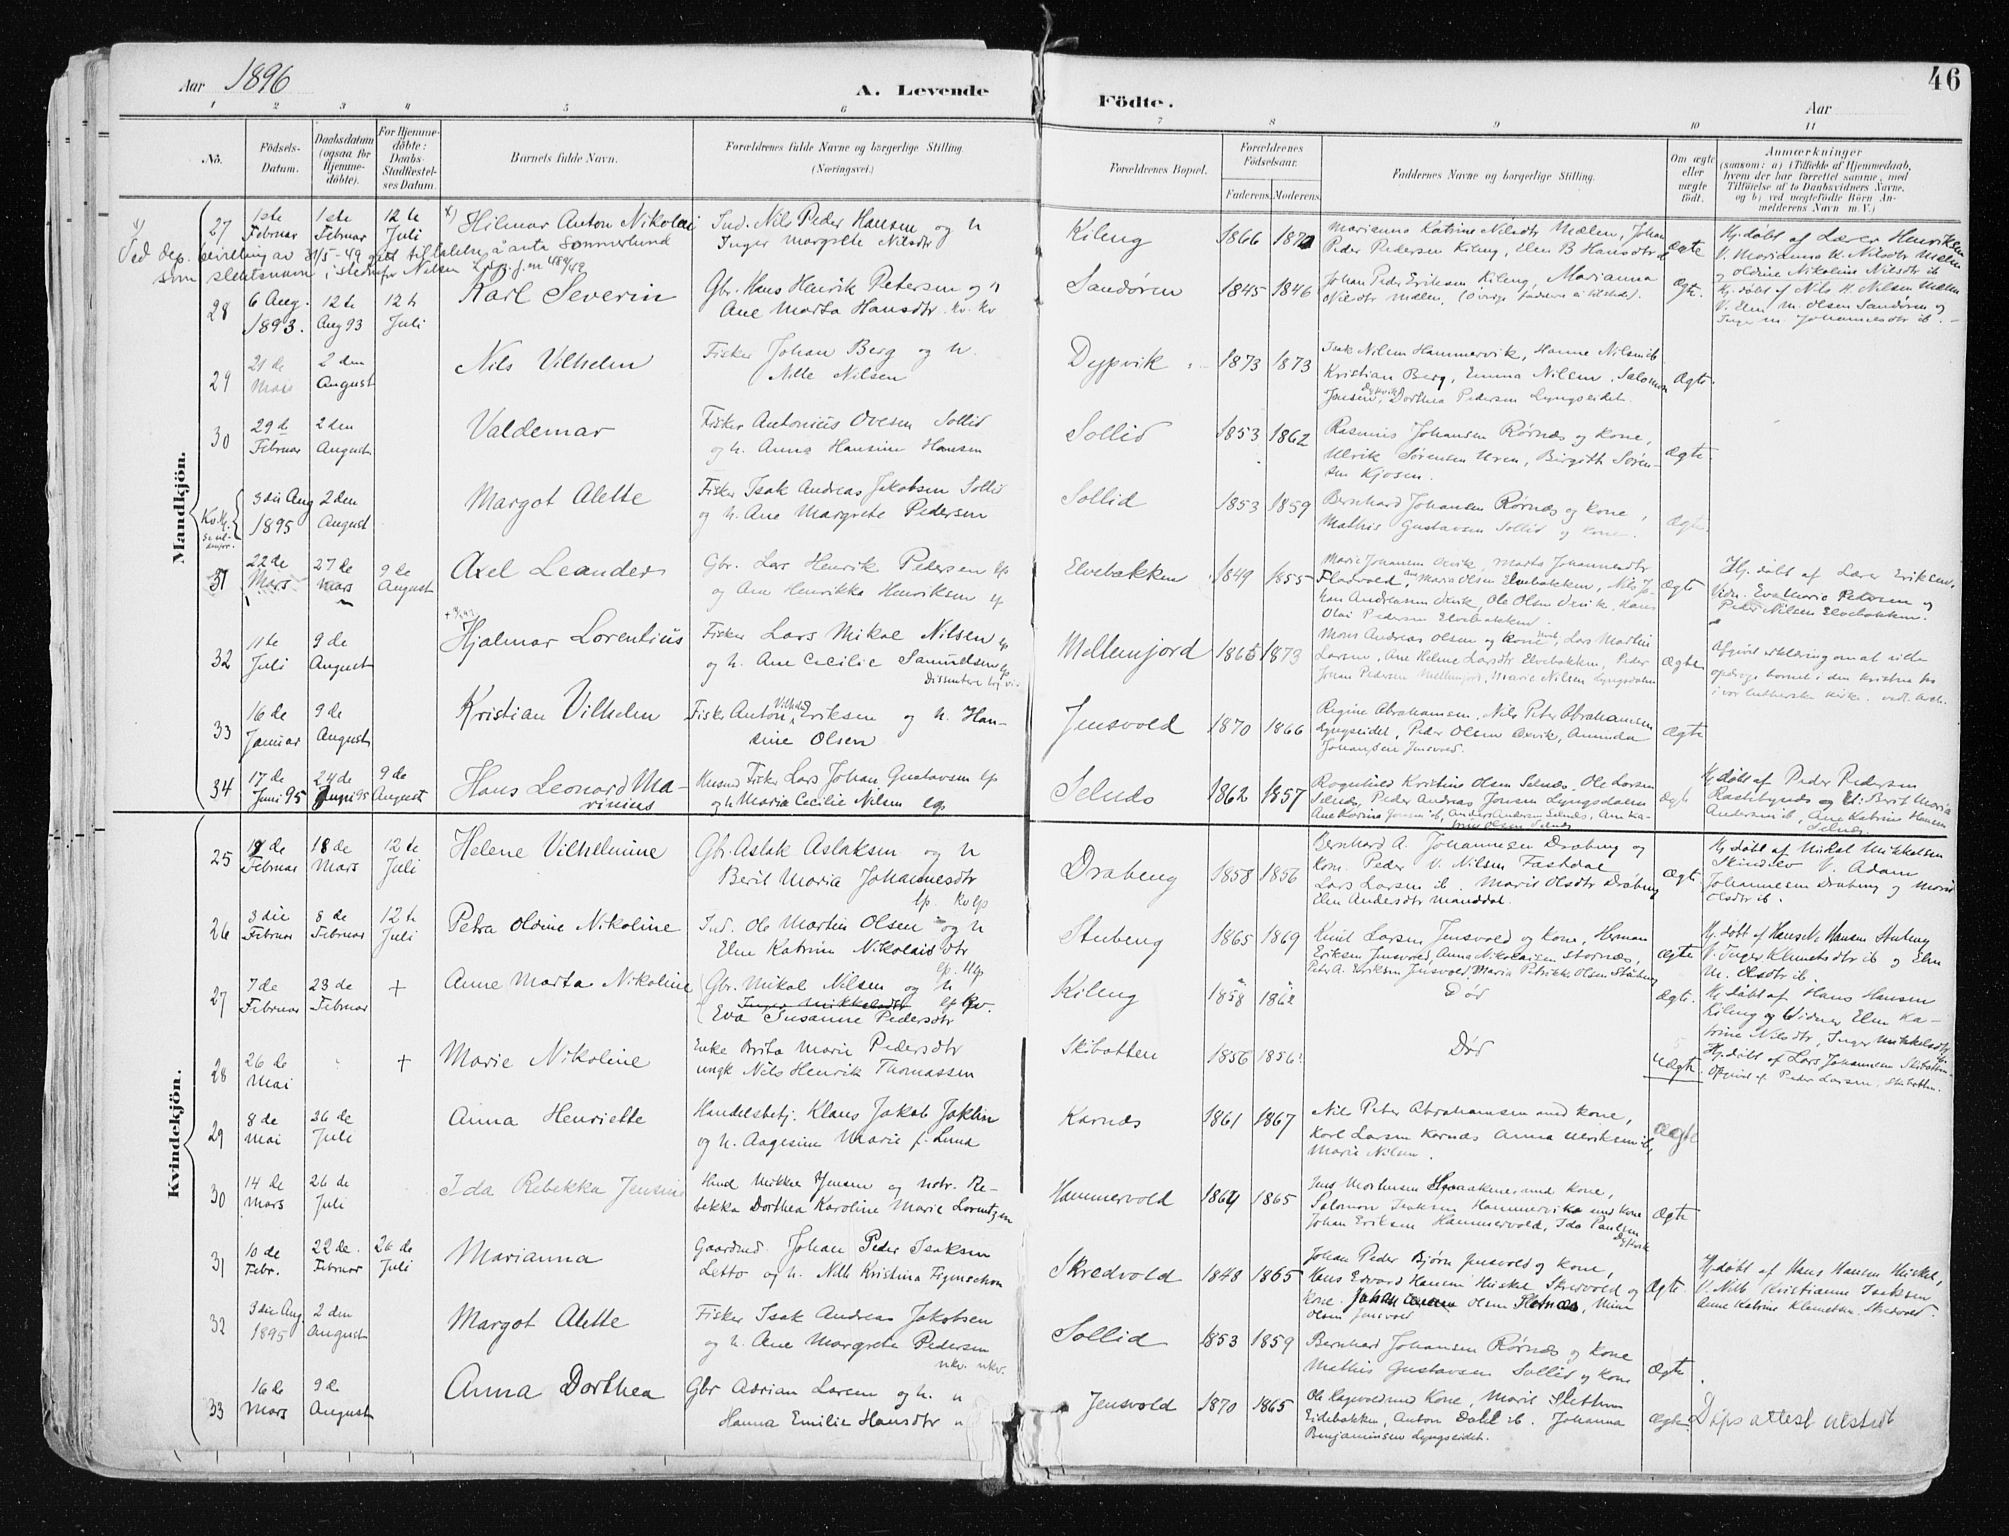 46
Aar 1896
A. Levende
Födte.
Aar
1 2 3 4 5 6 7 8 9 10 11
No.
Födsels-Datum.
Daabsdatum (ogsaa for Hjemmedöbte).
For Hjemmedöbte: Daabs-Stadfæstelses Datum.
Barnets fulde Navn.
Forældrenes fulde Navne og borgerlige Stilling. (Næringsvei.)
Forældrenes Bopæl.
Forældrenes Födselsaar.
Faderens. Moderens.
Faddernes Navne og borgerlige Stilling.
Om ægte eller uægte födt.
Anmærkninger
(saasom: a) i Tilfælde af Hjemmedaab,
hvem der har forrettet samme, med
Tilföielse af to Daabsvidners Navne,
og b) ved uægtefödte Börn An-
melderens Navn m. V.)
Mandkjön.
27 1ste Februar 1ste Februar 12te Juli x) Hilmar Anton Nikolai Ind. Nils Peder Hansen og h Inger Margrete Nilsdtr Kileng 1866 Marianna Katrine Nilsdtr Mælen, Johan Peder Pedersen Kileng, Elen B Hansdtr ægte Hj. døbt af Lærer Henriksen V. Marianna K. Nilsdtr Mælen og Oldine Nikoline Nilsdtr ib
Ved dep. bevilling av 31/5-49 gitt tillatelse å anta Sommerlund
som slektsnavn istedenfor Nilsen
28 6 Aug. 1893. 12te Aug 93 12te Juli Karl Severin Gbr. Hans Henrik Petersen og h Ane Marta Hansdtr. kv. kv Sandören 1845 1846 Johan Peder Eriksen Kileng, Marianna Nilsdtr Mælen, (Øvrige faddere ei tilstede). Ægte. Hj. døbt af Nils H. Nilsen Mælen V. Elen M. Olsen Sandøren og Inger M. Johannesdtr ib.
29 21de Mai 2den August Nils Vilhelm Fisker Johan Berg og h. Nille Nilsen Dypvik 1873 1873 Isak Nilsen Hammervik, Hanne Nilsen ib Kristian Berg, Emma Nilsen, Salomon Jensen Dypvik, Dorthea Pedersen Lyngseidet. Ægte.
30 29de Februar 2den August Valdemar Fisker Antonius Ovesen Sollid og h. Anna Hansine Hansen Sollid 1853 1862 Rasmus Johansen Rørnæs og Kone, Ulrik Sørensen Uren, Birgitte Sørensen Kjosen. Ægte.
3die Aug 1895 2den August Margot Alette Fisker Isak Andreas Jakobsen Sollid og h. Ane Margrete Pedersen Sollid 1853 1859 Bernhard Johansen Rørnæs og Kone, Mathis Gustavsen Sollid og Kone. Ægte
31 22de Mars 27de Mars 9de August Axel Leander Gbr. Lars Henrik Pedersen lp og Ane Henrikka Henriksen lp Elvebakken 1849 1855 Marie Johansen, Marta Johannesdtr Flaavold, Ane Maria Olsen Elvebakken, Nils Johan Andreassen, Ole Olsen, Hans Olai Pedersen Elvebakken. Ægte Hj. døbt af Lærer Eriksen. Vidn. Eva Marie Pedersen og Peder Nilsen Elvebakken.
32 11te Juli 9de August Hjalmar Lorentius Fisker Lars Mikal Nilsen lp og h. Ane Cecilie Samuelsen lp Dissentere Mellemjord 1865 1873 Mons Andreas Olsen og Kone, Lars Martin Larsen, Ane Helene Larsdtr Elvebakken, Peder Johan Pedersen Mellemjord, Marie Nilsen Lyngsdalen Ægte Afgivet erklæring om at ville opdrage barnet i den kristne tro i vor lutherske kirke.
33 16de Januar 9de August Kristian Vilhelm Fisker Anton Vilhelm Eriksen og h. Hansine Olsen Jensvold 1870 1866 Regine Abrahamsen, Nils Peter Abrahamsen Lyngseidet, Peder Olsen Oxvik, Amunda Johansen Jensvold. Ægte
34 17de Juni 95 24de Juni 95 9de August Hans Leonard Marinius Husmd Fisker Lars Johan Gustavsen lp og h. Maria Cecilie Nilsen lp. Selnæs 1862 1857 Ragnhild Kristine Olsen Selnæs, Ole Larsen Selnæs, Peder Andreas Jonsen Lyngsdalen Ane Karina Jensen ib, Anders Andersen Selnæs, Ane Kathrine Olsen Selnæs Ægte Hj døbt af Peder Pedersen Rastebynæs og V: Berit Maria Andersen ib, Ane Katrine Hansen Selnæs
Kvindekjön.
25 Februar 18de Mars 12te Juli Helene Vilhelmine Gbr. Aslak Aslaksen og h Berit Maria Johannesdtr lp. kv lp Drabeng 1858 1856 Bernhard A. Johannesen Drabeng og Kone. Peder V. Nilsen Fastdal Lars Larsen ib. Marit Olsdtr Drabeng Elen Andersdtr Manddal. Ægte. Hj døbt af Mikal Mikkelsen Skindelv V. Adam Johannesen Drabeng og Marit Olsdtr ib.
26 3die Februar 8de Februar 12te Juli Petra Oldine Nikoline Ind. Ole Martin Olsen og h Elen Katrine Nikolaisdtr Stubeng 1865 1869 Knut Larsen Jensvold og Kone, Herman Eriksen Jensvold, Anna Nikolaisen Stornæs, Peter A. Eriksen Jensvold, Maria Petrikke Olsen Stubeng Ægte Hj. døbt af Hans N. Hansen Stubeng V. Inger Klemetsdtr ib og Elen M. Olsdtr ib.
27 7de Februar 23de Februar + Anne Marta Nikoline Gbr. Mikal Nilsen og h Inger Mikkelsdtr Eva Susanne Pedersdtr Kileng 1858 1862 Død Ægte. Hj døbt af Hans Hansen Kileng og Vidner Elen Katrine Nilsdtr, Inger Mikkelsdtr ib.
28 26de Mai + Marie Nikoline Enke Brita Marie Pedersdtr ungk Nils Henrik Thomassen Skibotten 1856 1856 Død Uægte. Hj. døbt af Lars Johannesen Skibotten Opgivet af Peder Larsen, Skibotten.
29 8de Mai 26de Juli Anna Henriette Handelsbetj. Klaus Jakob Jaklin og h. Aagesine Marie f. Lund Karnæs 1861 1867 Nils Peter Abrahamsen med Kone, Karl Larsen Karnæs Anna Ulriksen ib, Marie Nilsen. Ægte
30 14de Mars 26de Juli Ida Rebekka Jensine Husmd Mikkel Jensen og h. Rebekka Dorthea Karoline Marie Lorentzen Hammervold 1864 1865 Jens Mortensen med Kone, Salomon Isaksen Hammervik med Kone Johan Eriksen Hammervold, Ida Paulsen Dypvik Ægte
31 10de Febr. 22de Februar 26de Juli Marianna Gaardmd. Johan Peder Isaksen Letto og h. Nille Kristina Figenschou Skredvold 1848 1865 Johan Peder Bjørn Jensvold og Kone, Hans Edvard Hansen Hueskel Skredvold og Kone. Olsen, Olsen Jensvold Ægte. Hj. døbt af Hans Hansen Hueskel, V. Nille Kristianne Isaksen Anne Katrine Klemetsen Skredvold.
32 3die Aug 1895 2den August Margot Alette Fisker Isak Andreas Jakobsen og h. Ane Margrete Pedersen nkv. nkv. Sollid 1853 1859 Bernhard Johansen Rørnæs og Kone Mathis Gustavsen Sollid og Kone Ægte
33 16de Mars 9de August Anna Dorthea Gbr Adrian Larsen og h. n Hanna Emilie Hansdtr n Jensvold 1870 1865 Ole Ragnvald med Kone, Marit Slettum Eidebakken, Anton Dahl ib. Johanna Benjaminsen Lyngseidet. Ægte Døps attest utstedt